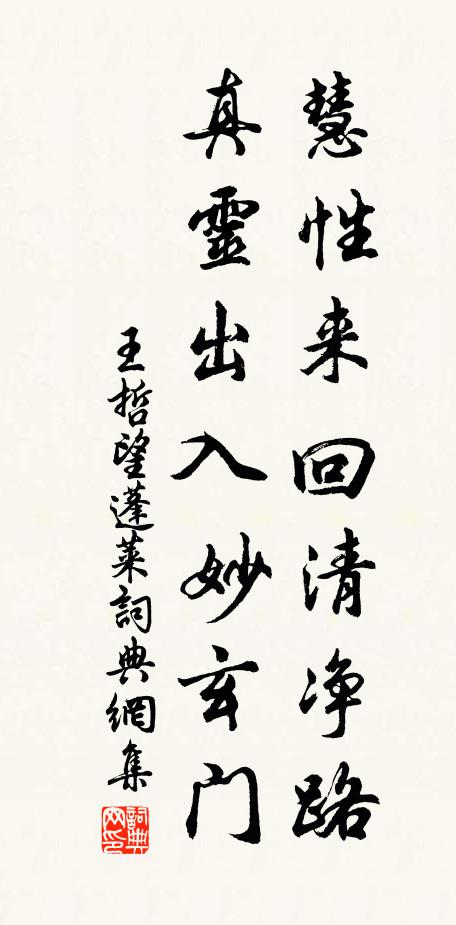 慧性来回清净路
真靈出入妙玄门
王哲望蓬莱詞典網集
詞典网印